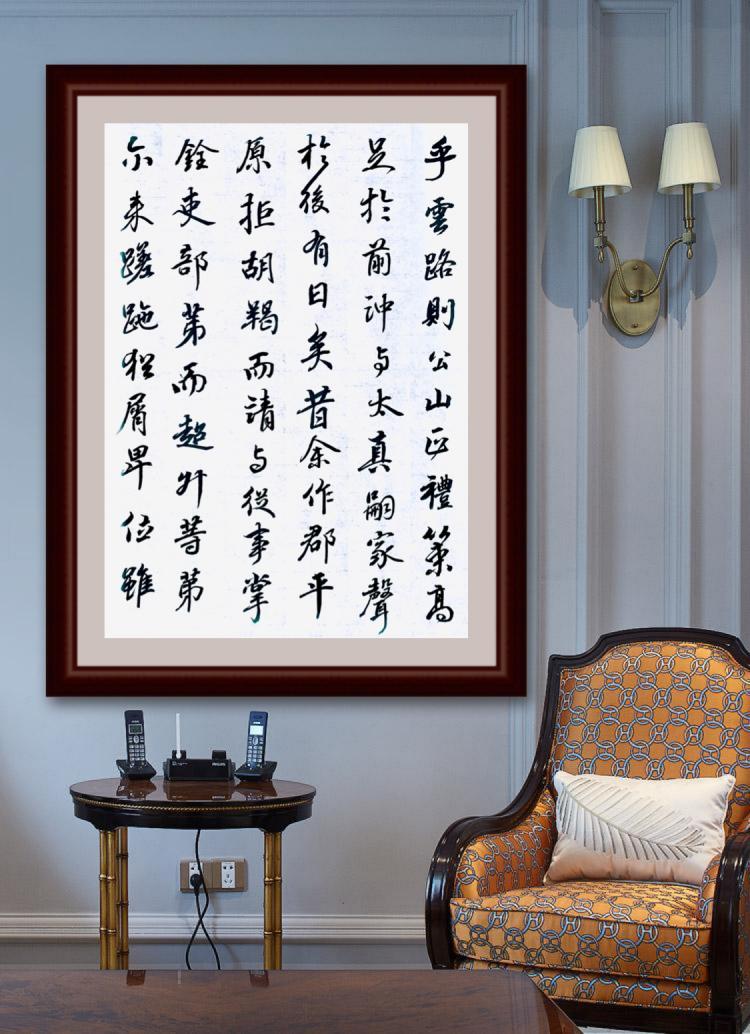 乎雲路則公山正禮策高
足於前沖与太真嗣家聲
於後有日矣昔余作郡平
原拒胡羯而請与從事掌
銓吏部第而超升等第
尔来蹉跎猶屑卑位雖
PHILIPS